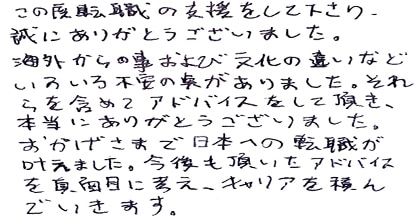 この度転職の支援をして下さり、
誠にありがとうございました。
海外からの事および文化の違いなど
いろいろ不安の点がありました。それ
らを含めてアドバイスをして頂き、
本当にありがとうございました。
おかげさまで日本への転職が
叶えました。今後も頂いたアドバイス
を真面目に考え、キャリアを積ん
でいきます。